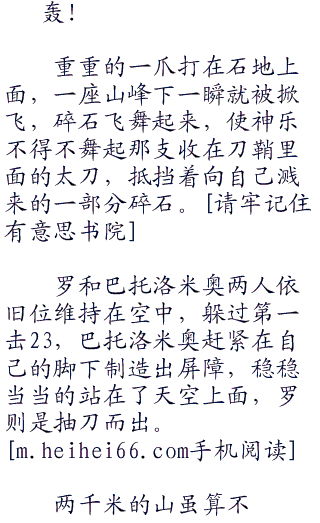 轰！
重重的一爪打在石地上
面，一座山峰下一瞬就被掀
飞，碎石飞舞起来，使神乐
不得不舞起那支收在刀鞘里
面的太刀，抵挡着向自己溅
来的一部分碎石。[请牢记住
有意思书院]
罗和巴托洛米奥两人依
旧位维持在空中，躲过第一
击23，巴托洛米奥赶紧在自
己的脚下制造出屏障，稳稳
当当的站在了天空上面，罗
则是抽刀而出。
[m.heihei66.com手机阅读]
两千米的山虽算不